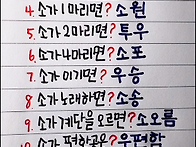 4. 소가 1 마리면? 소원
5. 소가 2마리면? 투우
6. 소가 4마리면? 소포
7. 소가 이기면? 우승
8. 소가 노래하면? 소송
9. 소가 계단을 오르면? 소오름